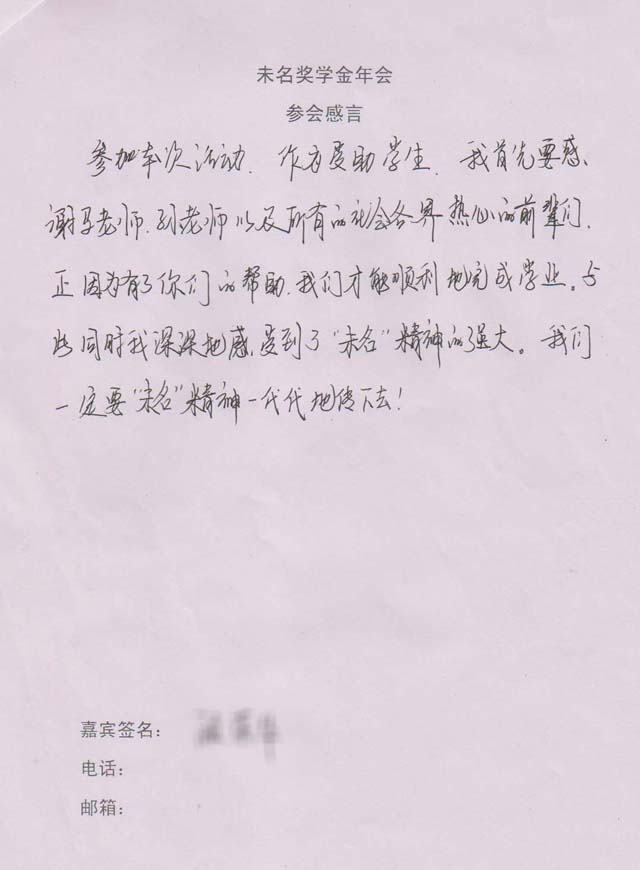 未名奖学金年会
参会感言
参加本次活动，作为受助学生，我首先要感
谢马老师、孙老师以及所有的社会各界热心的前辈们，
正因为有了你们的帮助，我们才能顺利地完成学业。与
此同时我深深地感受到了"未名"精神的强大。我们
一定要"未名"精神一代代地传下去！
嘉宾签名：
电话：
邮箱：